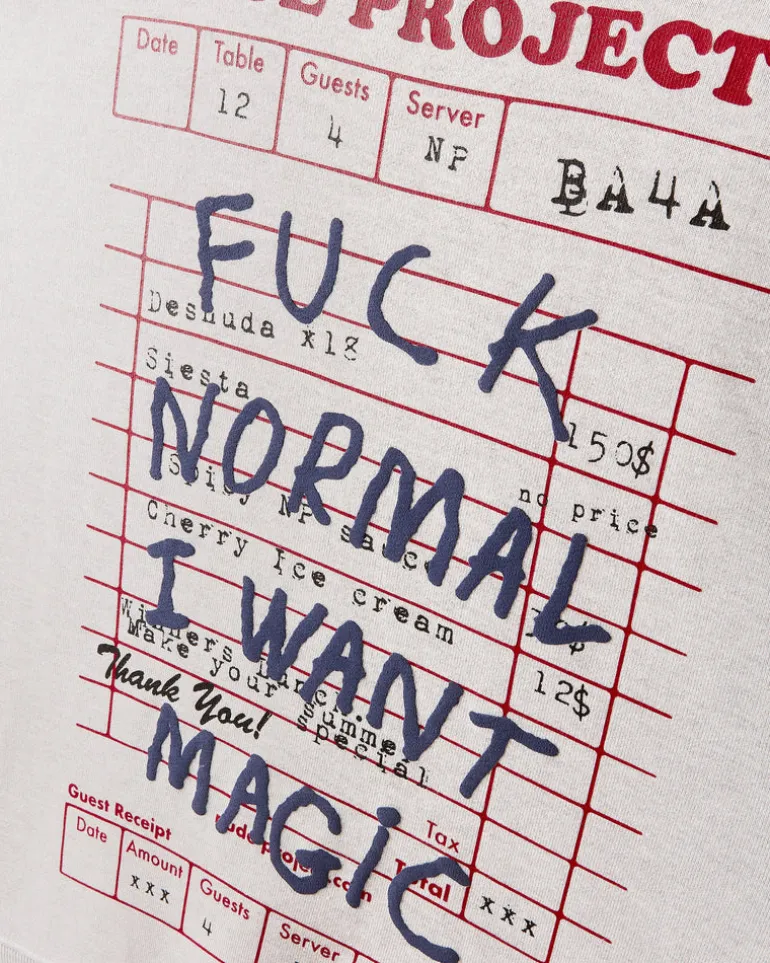 PROJECT
Date Table Guests Server
12 4 NP BA4A
FUCK
Desnuda x18
150$
Siesta
no price
NORMAL
NP sauce
Cherry Ice cream
12$
I WANT
Winners Lunch.
Make your summer
special
Thank You!
MAGiC
Tax
Guest Receipt rude-project.com Total xxx
Date Amount Guests Server
xxx 4